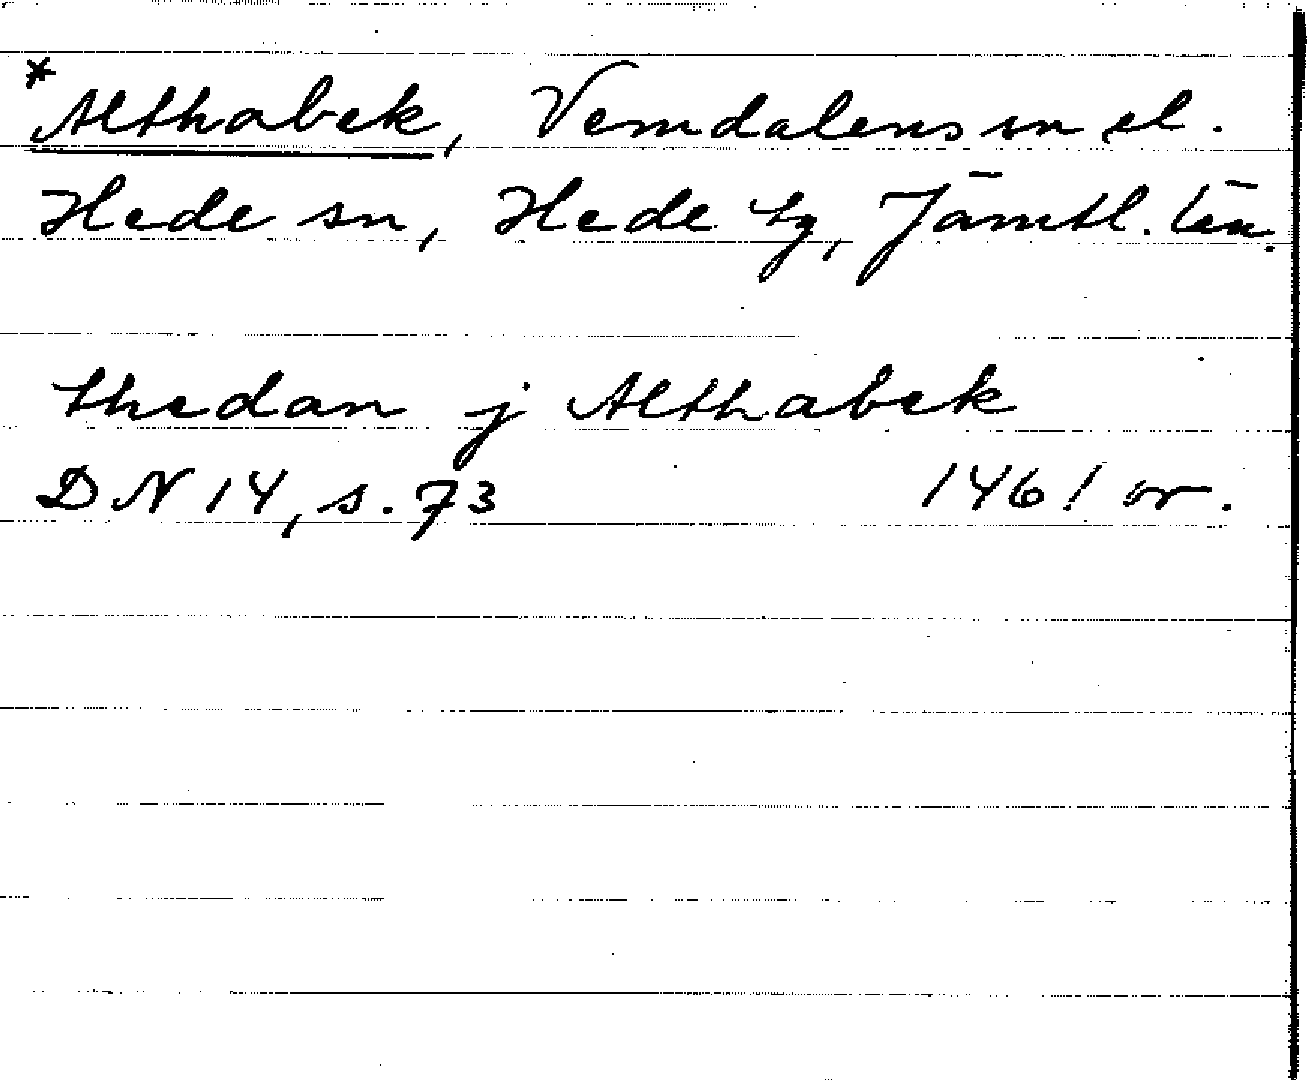 *Althabek, Vemdalens sn el.
Hede sn, Hede tg, Jämtl. län.
thedan j Althabek
DN 14, s. 73 1461 or.